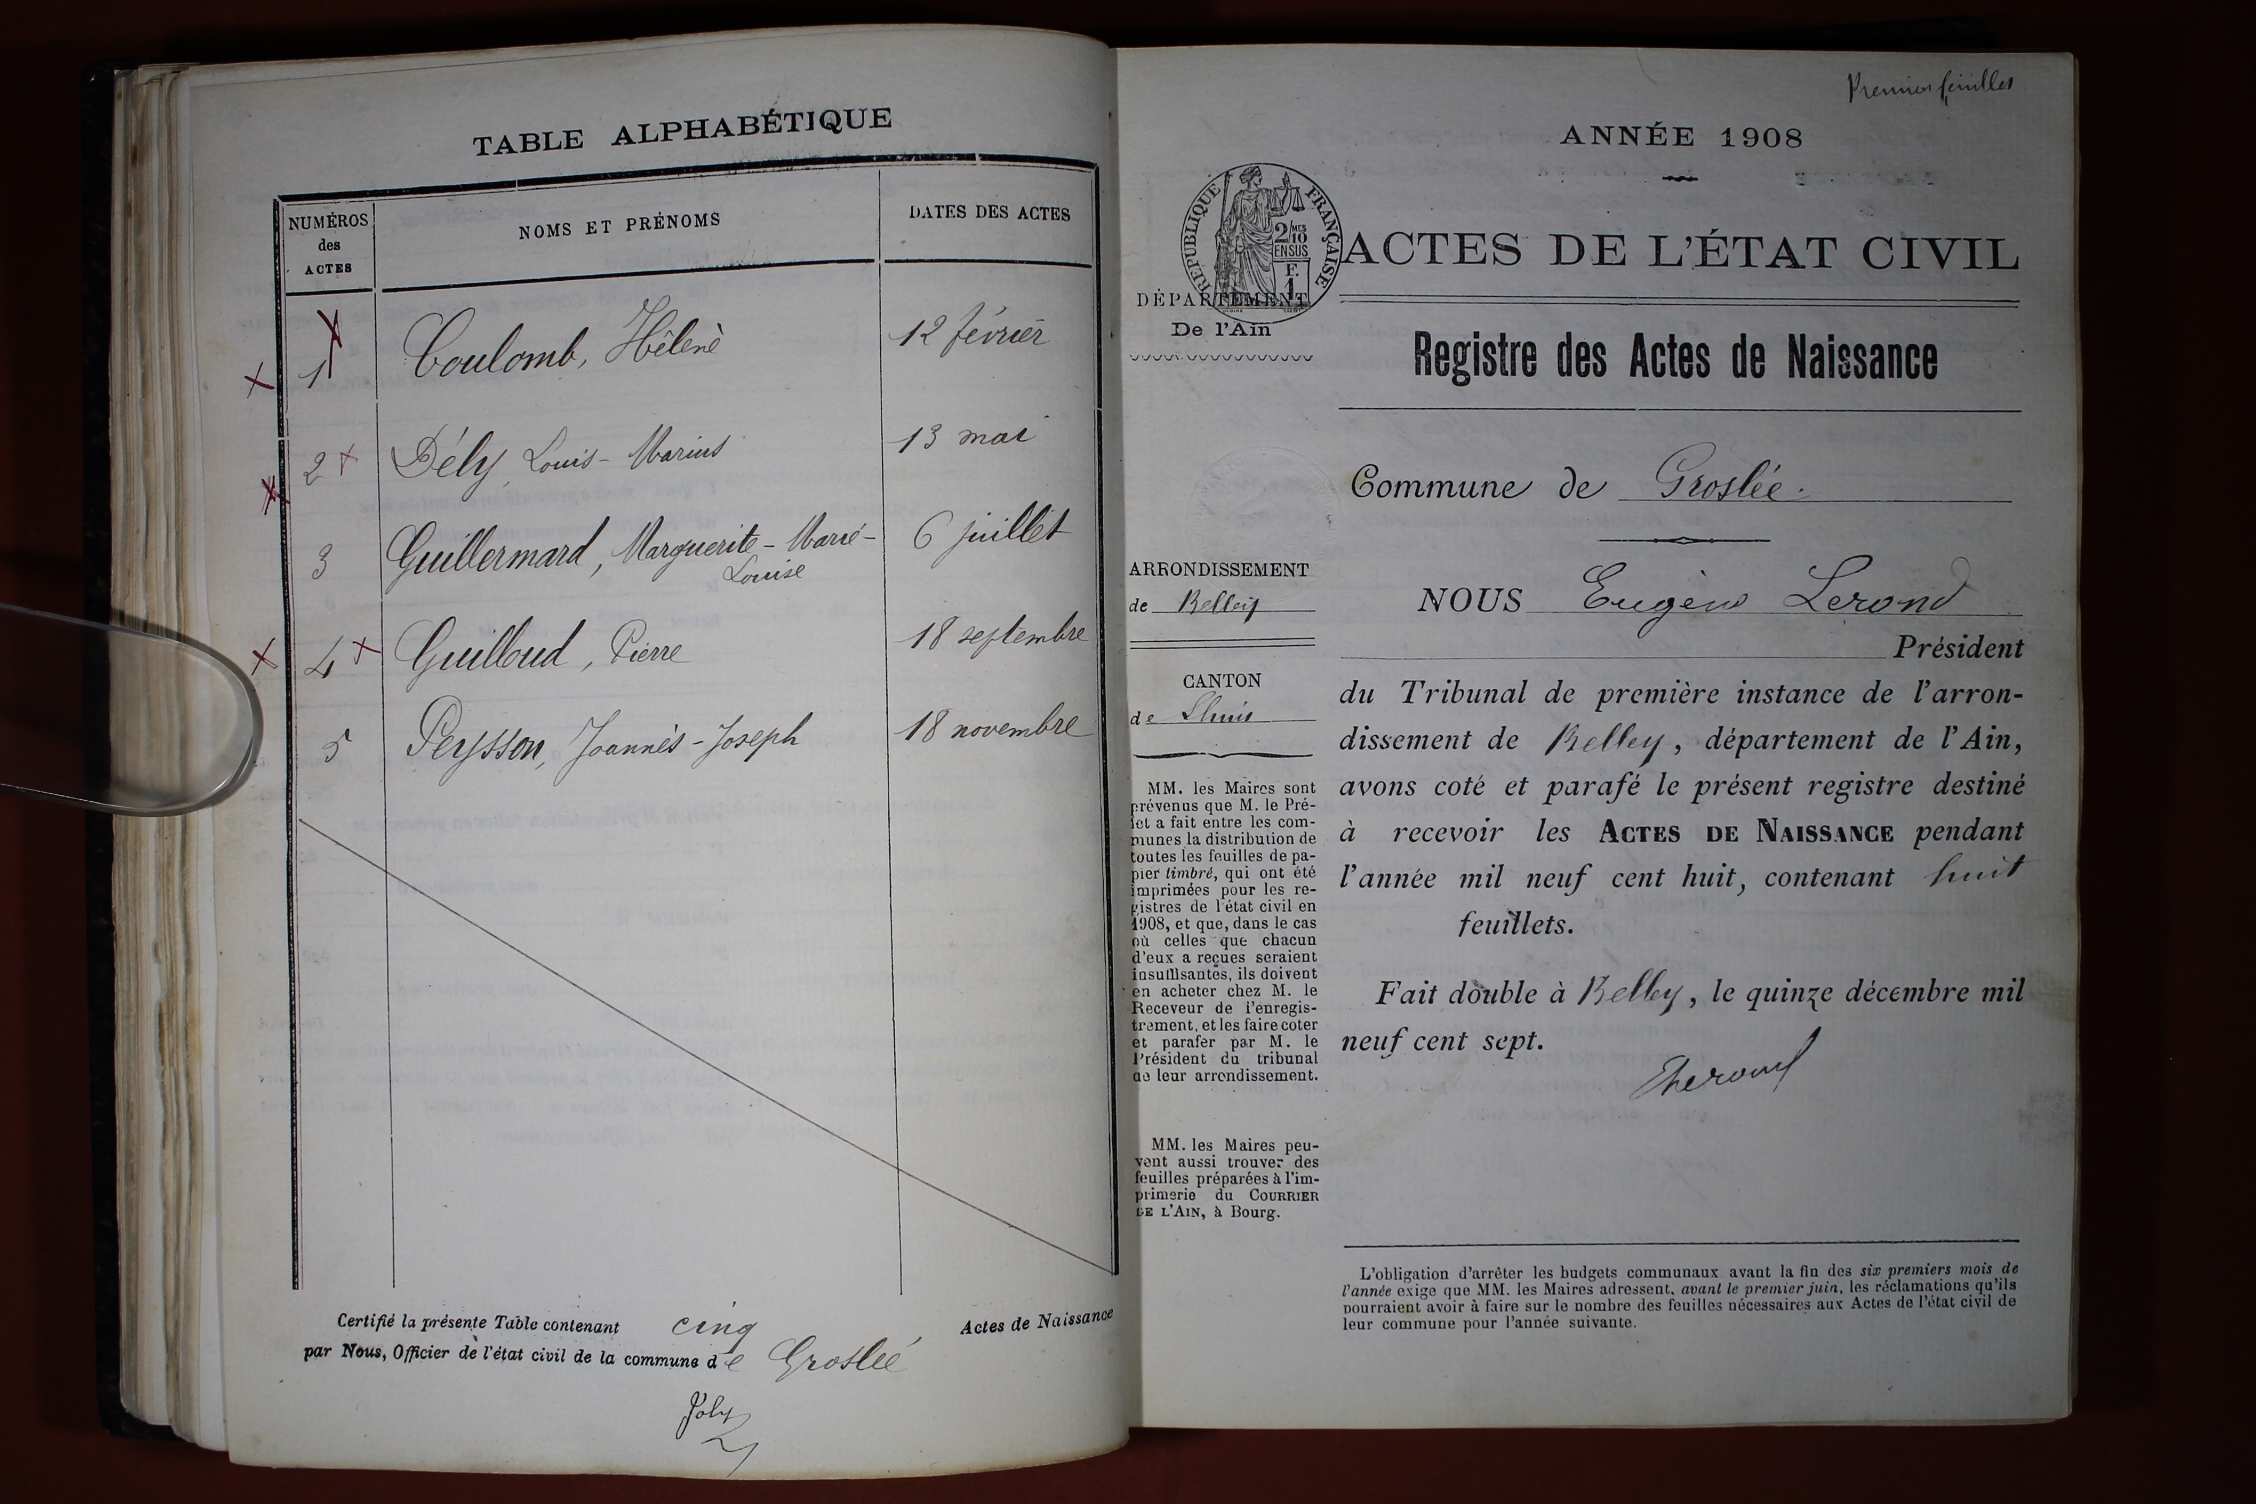 TABLE ALPHABÉTIQUE
NUMÉROS
des
ACTES
NOMS ET PRÉNOMS
DATES DES ACTES
1 Coulomb, Hélène 12 février
2 Dély Louis-Marius 13 mai
3 Guillermard, Marguerite-Marie- 6 juillet
Louise
4 Guilloud, Pierre 18 septembre
5 Peysson, Joannès-Joseph 18 novembre
Certifié la présente Table contenant cinq Actes de Naissance
par Nous, Officier de l'état civil de la commune de Groslée
Joly
Premier feuillet
ANNÉE 1908
RÉPUBLIQUE FRANÇAISE
2/10
MES
EN SUS
F.
1
ACTES DE L'ÉTAT CIVIL
DÉPARTEMENT
De l'Ain
Registre des Actes de Naissance
Commune de Groslée.
ARRONDISSEMENT
de Belley
CANTON
de Lhuis
MM. les Maires sont
prévenus que M. le Pré-
fet a fait entre les com-
munes la distribution de
toutes les feuilles de pa-
pier timbré, qui ont été
imprimées pour les re-
gistres de l'état civil en
1908, et que, dans le cas
où celles que chacun
d'eux a reçues seraient
insuffisantes, ils doivent
en acheter chez M. le
Receveur de l'enregis-
trement, et les faire coter
et parafer par M. le
Président du tribunal
de leur arrondissement.
MM. les Maires peu-
vent aussi trouver des
feuilles préparées à l'im-
primerie du COURRIER
DE L'AIN, à Bourg.
NOUS Eugène Lerond
Président
du Tribunal de première instance de l'arron-
dissement de Belley, département de l'Ain,
avons coté et parafé le présent registre destiné
à recevoir les ACTES DE NAISSANCE pendant
l'année mil neuf cent huit, contenant huit
feuillets.
Fait double à Belley, le quinze décembre mil
neuf cent sept.
ELerond
L'obligation d'arrêter les budgets communaux avant la fin des six premiers mois de
l'année exige que MM. les Maires adressent, avant le premier juin, les réclamations qu'ils
pourraient avoir à faire sur le nombre des feuilles nécessaires aux Actes de l'état civil de
leur commune pour l'année suivante.